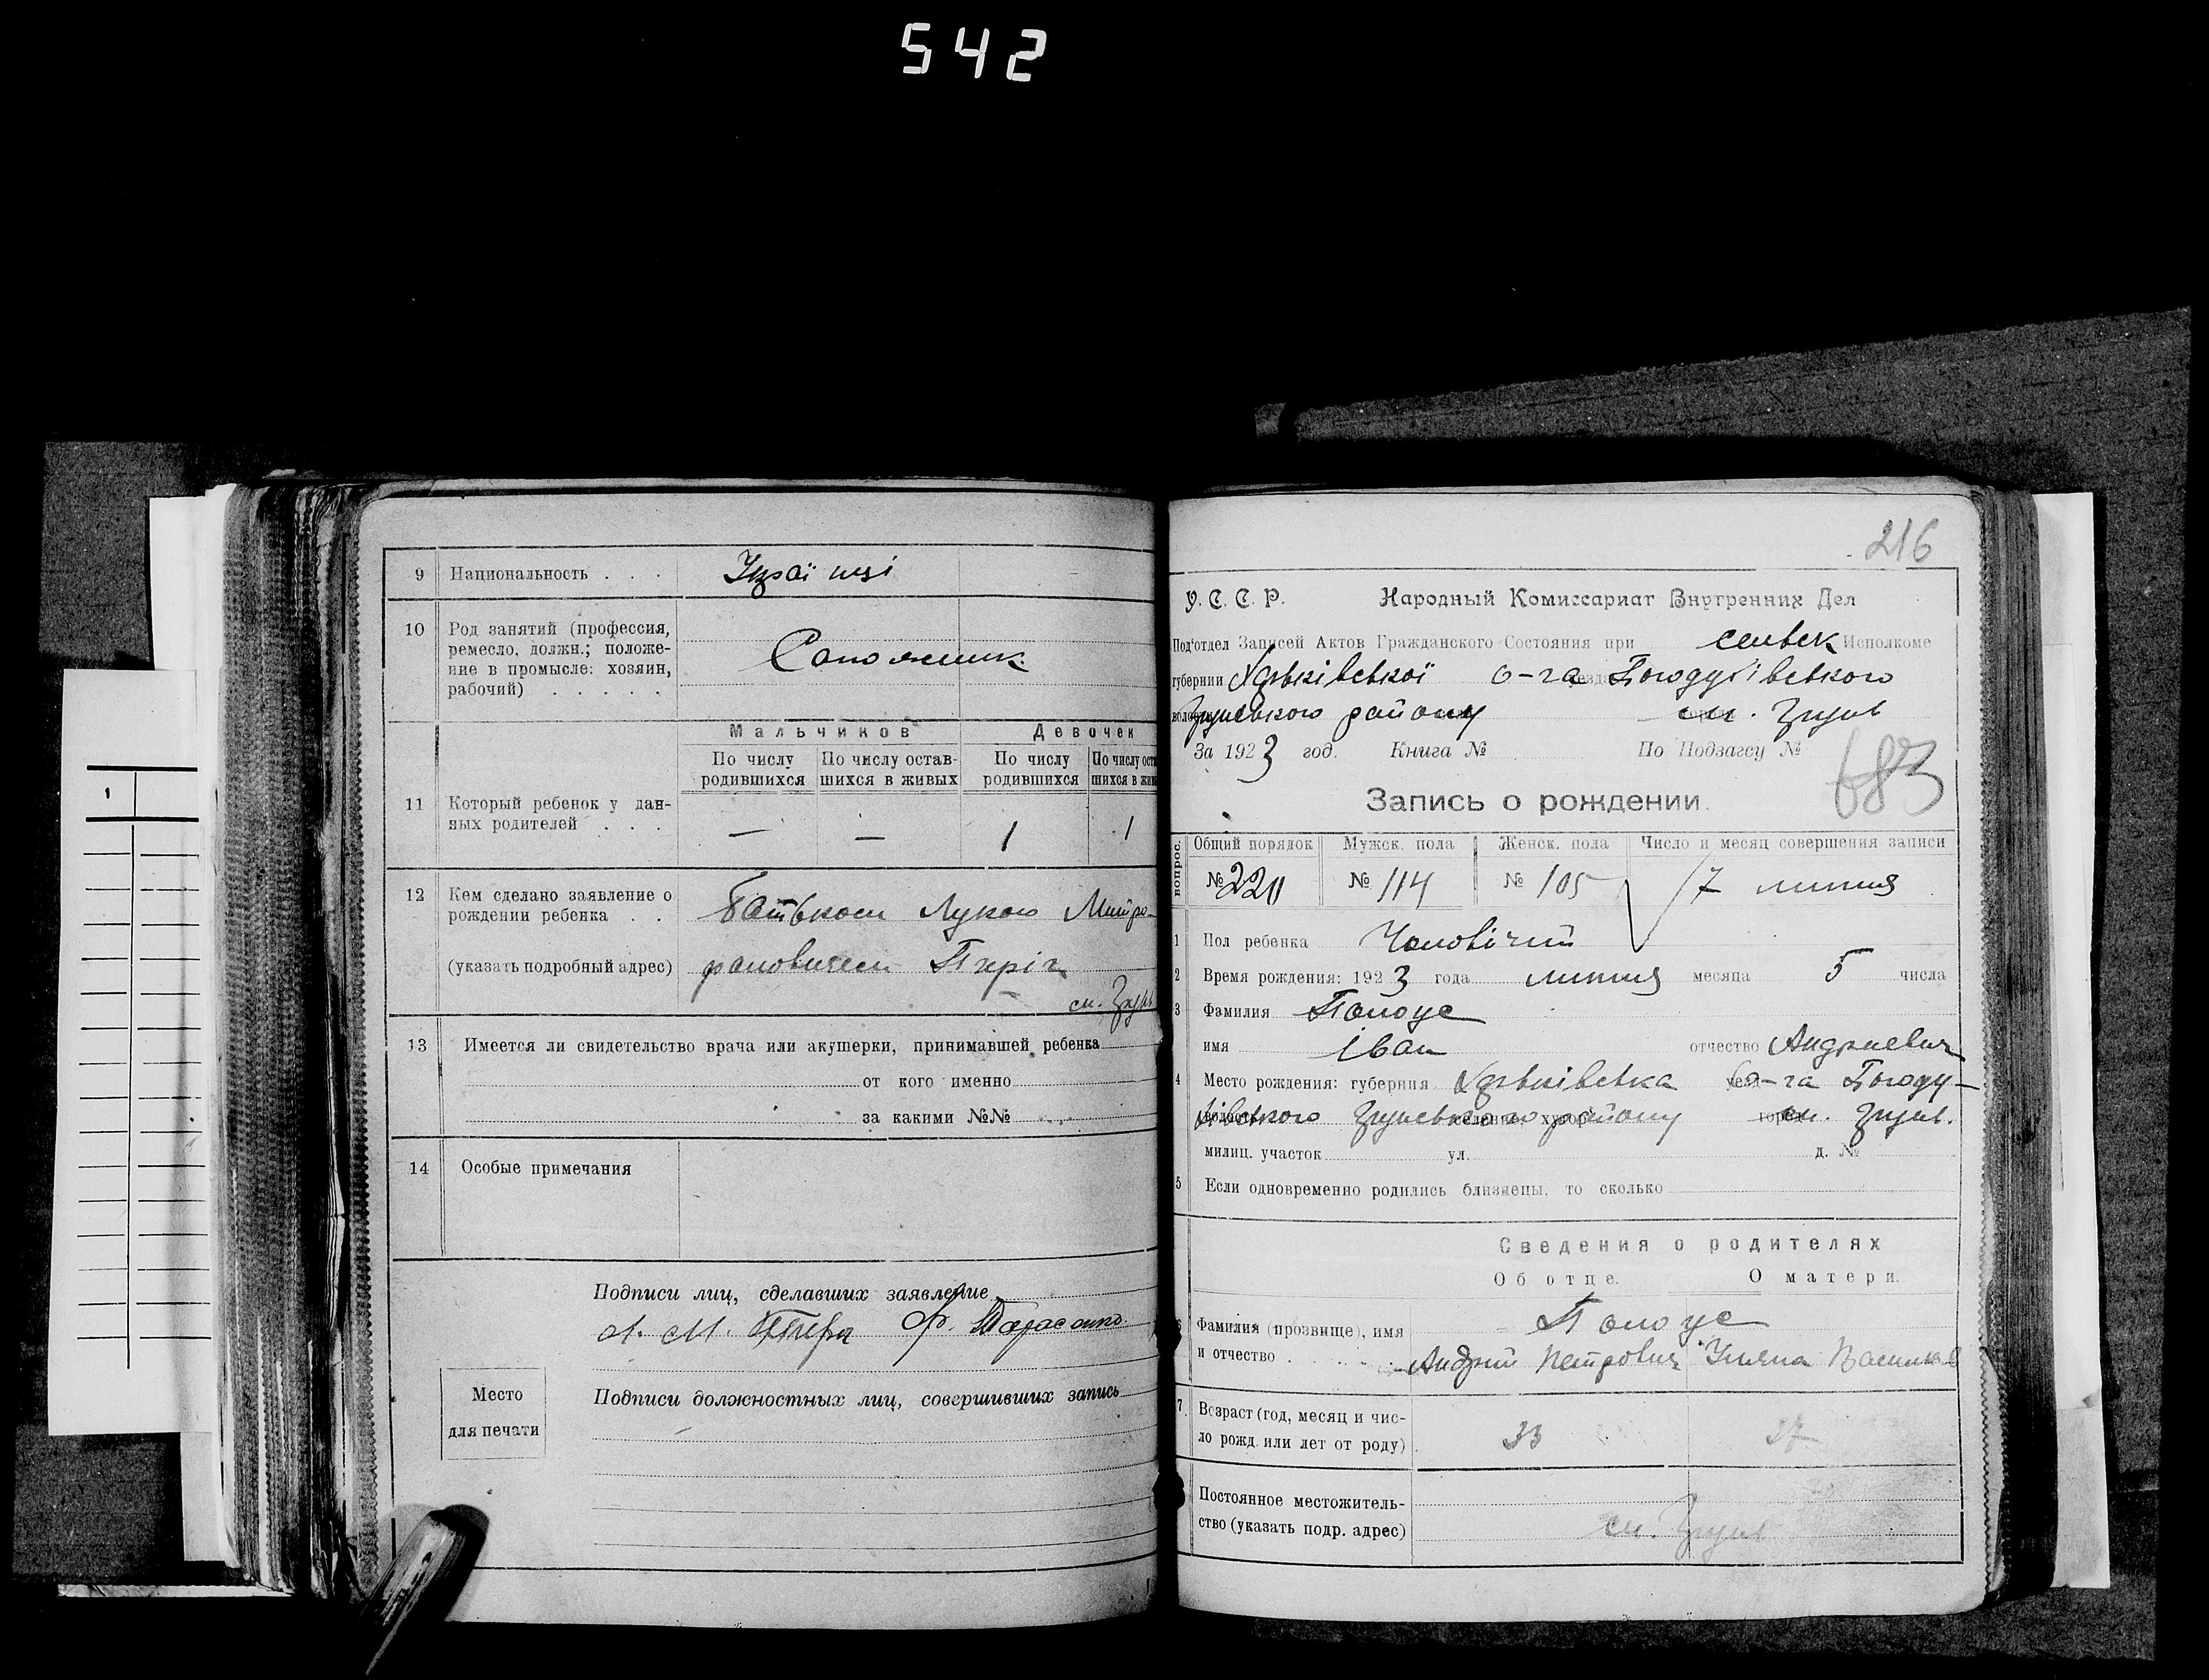 542
9 Национальность . . . Українці
10 Род занятий (профессия,
ремесло, должн.; положе-
ние в промысле: хозяин,
рабочий) . . . . .
Сапожник
Мальчиков Девочек
По числу родившихся По числу остав-шихся в живых По числу родившихся По числу оста шихся в жив
11 Который ребенок у дан-
ных родителей . . .
— — 1 1
12 Кем сделано заявление о
рождении ребенка . . Батьком Лукою Митро-
(указать подробный адрес) фановичем
см.
13 Имеется ли свидетельство врача или акушерки, принимавшей ребенка
от кого именно
за какими №№
14 Особые примечания
Подписи лиц, сделавших заявление
Л. М.
Место
для печати
Подписи должностных лиц, совершивших запись
216
У. С. С. Р. Народный Комиссариат Внутренних Дел
Под'отдел Записей Актов Гражданского Состояния при Исполкоме
губернии Харьківської о-га Богодухівського
району см. Грунь
За 1923 год. Книга № По Подзагсу №
683
Запись о рождении.
вопрос. Общий порядок Мужск. пола Женск. пола Число и месяц совершения записи
№ 220 № 114 № 105 17 липня
1 Пол ребенка Чоловічий
2 Время рождения: 1923 года липня месяца 5 числа
3 Фамилия Полоус
имя Іван отчество Андриевич
4 Место рождения: губерния Харьківська о-га Богоду-
хівського Груньського району см. Грунь.
милиц. участок ул. д. №
5 Если одновременно родились близнецы, то сколько
Сведения о родителях
Об отце. О матери.
6 Фамилия (прозвище), имя Полоус
и отчество . . . . . Андрій Петрович Уляна
7 Возраст (год, месяц и чис-
ло рожд. или лет от роду) 33 27
Постоянное местожитель-
ство (указать подр. адрес) см. Грунь